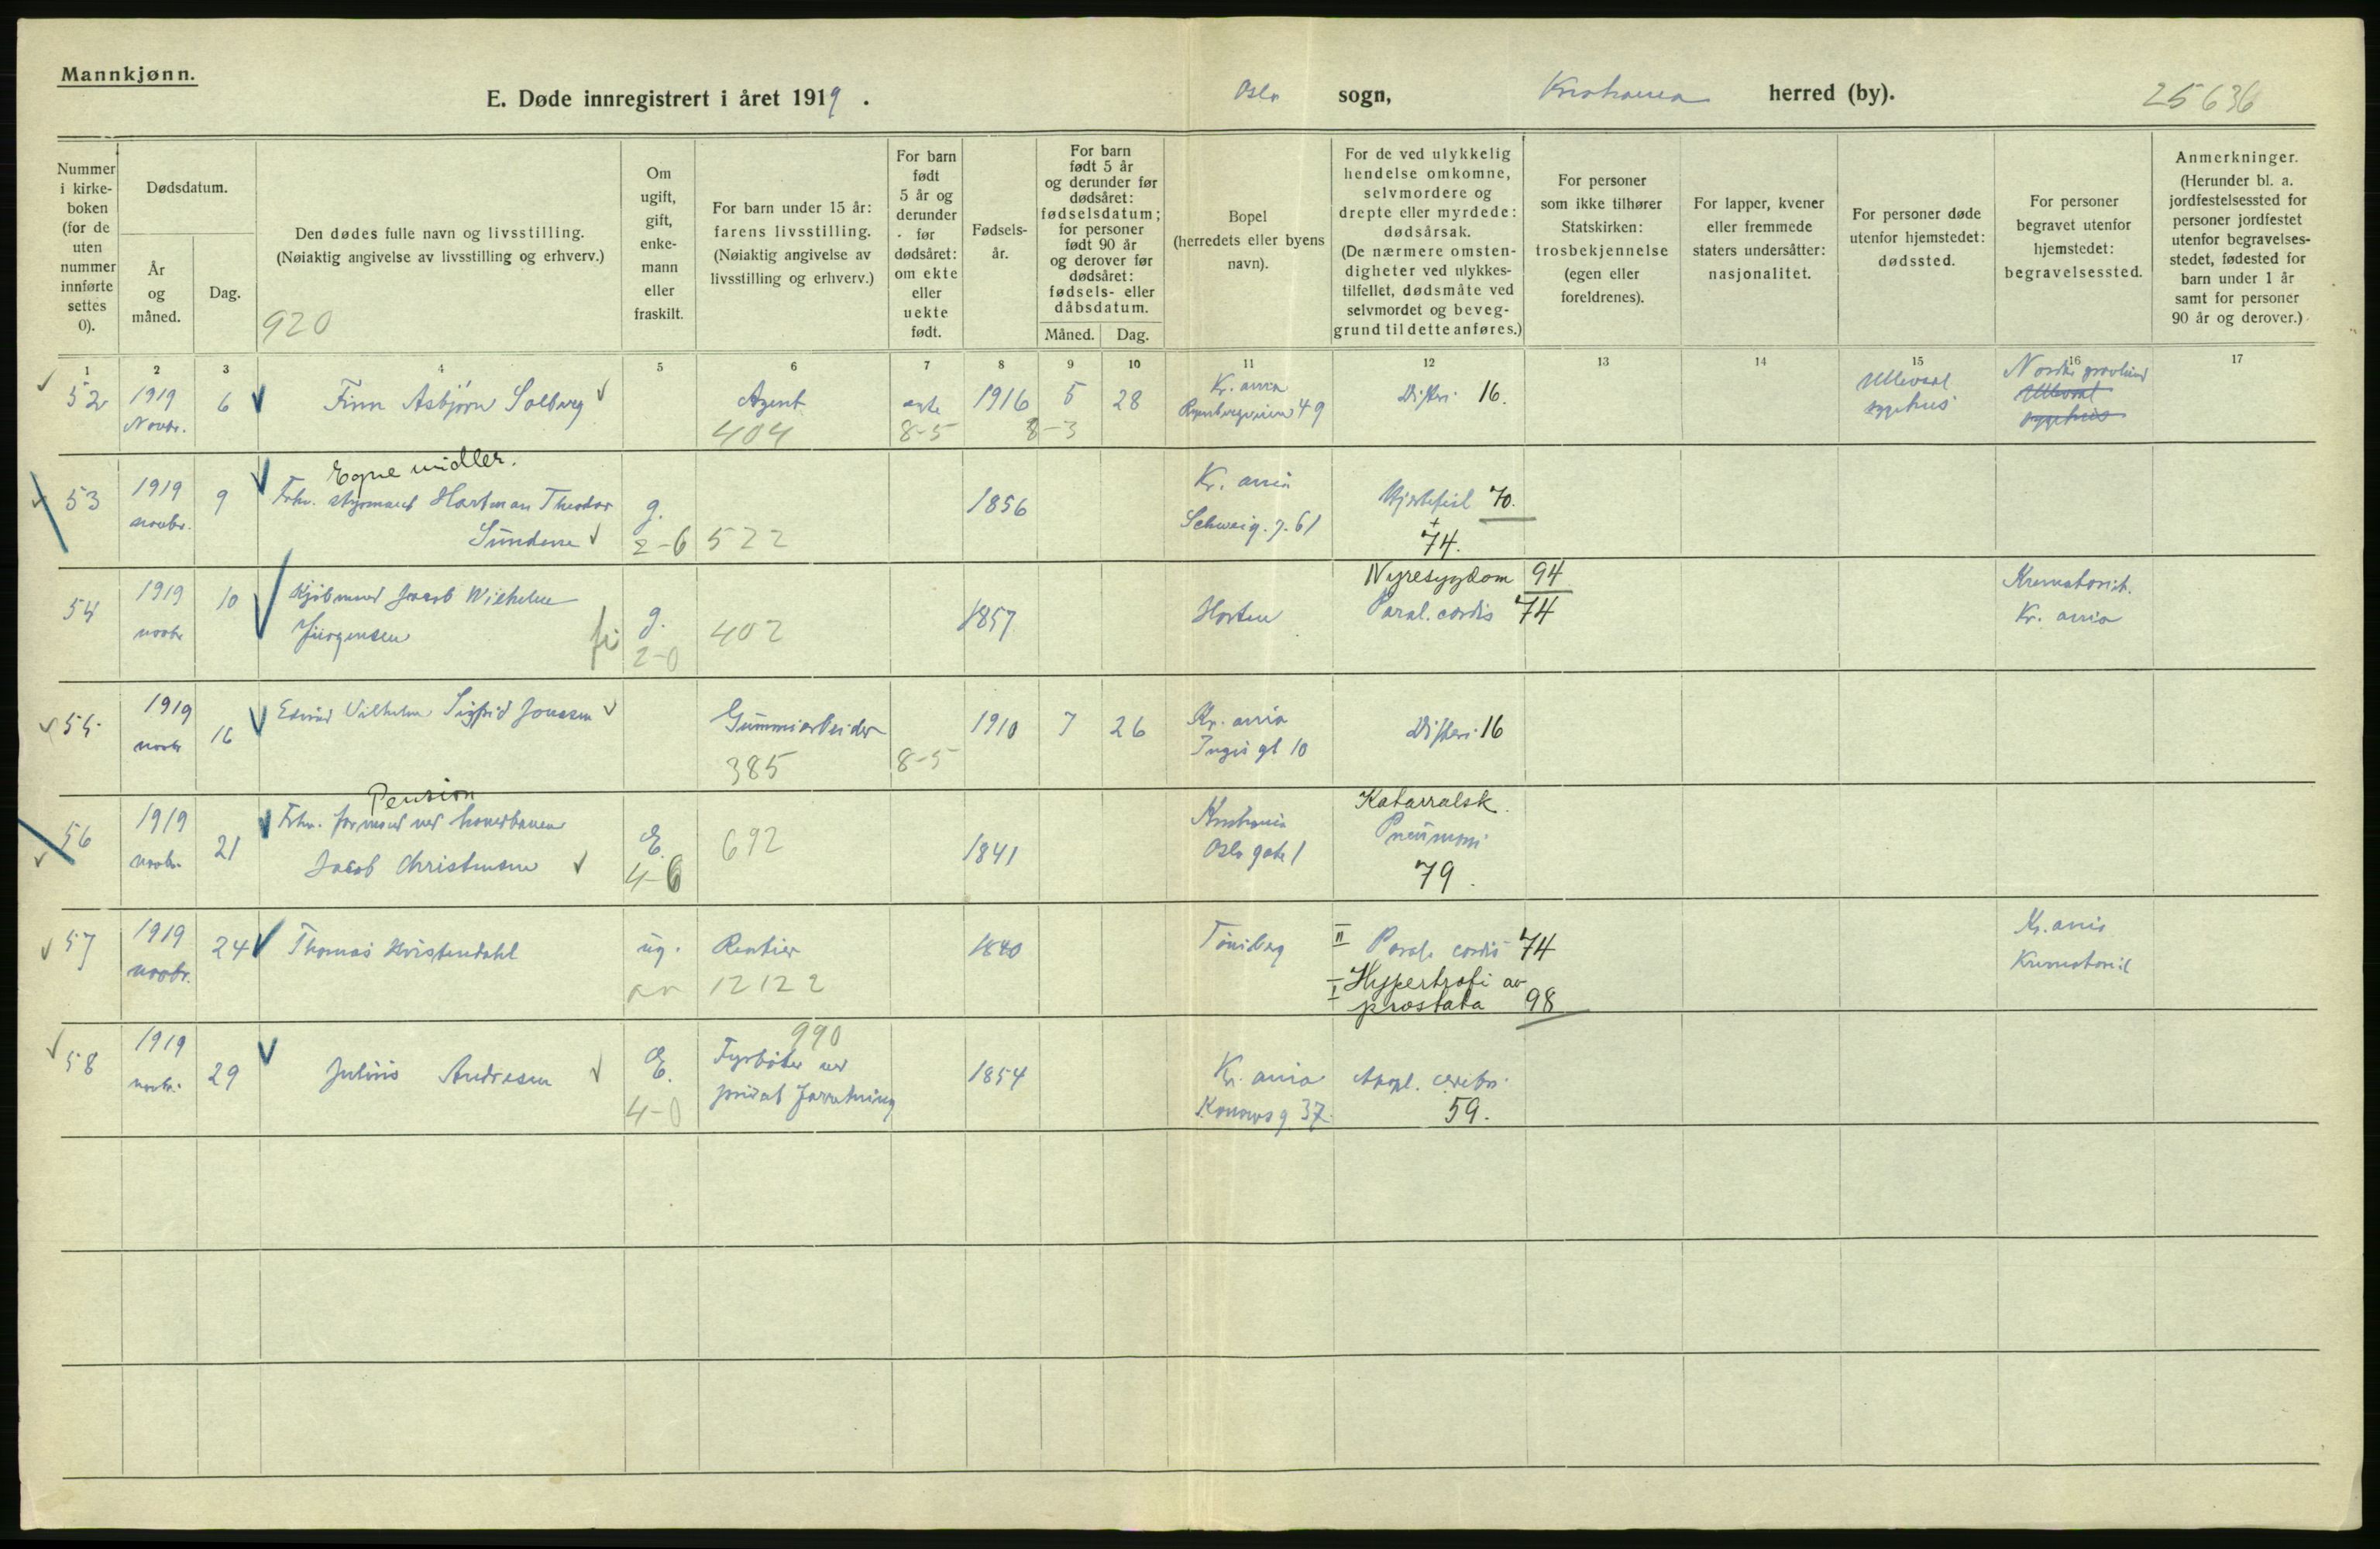 Mannkjønn.
E. Døde innregistrert i året 1919. Oslo sogn, Kristiania herred (by). 25636
Nummer i kirke-boken (for de uten nummer innførte settes 0).
Dødsdatum.
År og måned.
Dag.
Den dødes fulle navn og livsstilling.
(Nøiaktig angivelse av livsstilling og erhverv.)
920
Om ugift, gift, enke-mann eller fraskilt.
For barn under 15 år: farens livsstilling.
(Nøiaktig angivelse av livsstilling og erhverv.)
For barn født 5 år og derunder før dødsåret: om ekte eller uekte født.
Fødsels-år.
For barn født 5 år og derunder før dødsåret: fødselsdatum; for personer født 90 år og derover før dødsåret: fødsels- eller dåbsdatum.
Måned.
Dag.
Bopel (herredets eller byens navn).
For de ved ulykkelig hendelse omkomne, selvmordere og drepte eller myrdede: dødsårsak.
(De nærmere omsten-digheter ved ulykkes-tilfellet, dødsmåte ved selvmordet og beveg-grund til dette anføres.)
For personer som ikke tilhører Statskirken: trosbekjennelse (egen eller foreldrenes).
For lapper, kvener eller fremmede staters undersåtter: nasjonalitet.
For personer døde utenfor hjemstedet: dødssted.
For personer begravet utenfor hjemstedet: begravelsessted.
Anmerkninger.
(Herunder bl. a. jordfestelsessted for personer jordfestet utenfor begravelses-stedet, fødested for barn under 1 år samt for personer 90 år og derover.)
1 2 3 4 5 6 7 8 9 10 11 12 13 14 15 16 17
52 1919 Novbr. 6 Finn Asbjørn Solberg Agent 404 ægte 8-5 1916 5 28 8-3 Kr.ania 49 Difteri 16. Ullevaal sygehus Nordre gravlund Ullevaal sygehus
53 1919 novbr. 9 Egne midler. Fhv. styrmand Hartman Theodor g. 2-6 522 1856 Kr.ania Schweig. g. 61 Hjertefeil 70. + 74.
54 1919 novbr 10 Kjøbmand Jacob Wilhelm Jürgensen g. 2-0 402 1857 Horten Nyresygdom 94 Paral. cordis 74 Krematoriet. Kr.ania
55 1919 novbr 16 Vilhelm Sigfrid Gummiarbeider 385 8-5 1910 7 26 Kr.ania gt 10 Difteri 16
56 1919 novbr. 21 Pension Fhv. formand ved Jacob Christensen E. 4-6 692 1841 Kristiania Oslo gate 1 Katarralsk Pneumoni 79.
57 1919 novbr. 24 Thomas Hvistendahl ug. Rentier 12122 1840 Tønsberg II Paral. cordis 74 I Hypertrofi av prostata 98 Kr.ania Krematoriet
58 1919 novbr. 29 Julius Andresen E. 4-0 990 Fyrbøter ved privat forretning 1854 Kr.ania Konowsg 37. Apopl. cerebri 59.